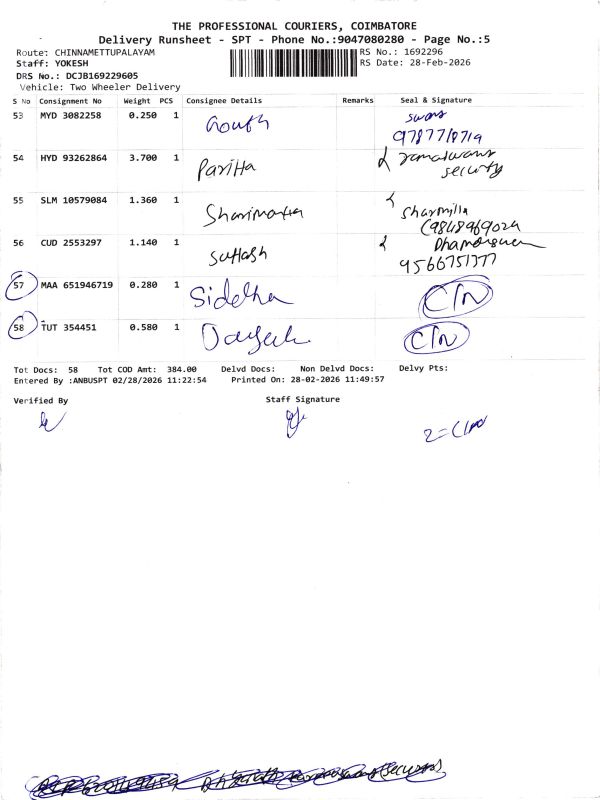 THE PROFESSIONAL COURIERS, COIMBATORE
Delivery Runsheet - SPT - Phone No.:9047080280 - Page No.:5
Route: CHINNAMETTUPALAYAM RS No.: 1692296
Staff: YOKESH RS Date: 28-Feb-2026
DRS No.: DCJB169229605
Vehicle: Two Wheeler Delivery
S No Consignment No Weight PCS Consignee Details Remarks Seal & Signature
53 MYD 3082258 0.250 1
54 HYD 93262864 3.700 1 Paritta
security
55 SLM 10579084 1.360 1
Sharmilla
9848969029
56 CUD 2553297 1.140 1
9566751377
57 MAA 651946719 0.280 1 Siddha
58 TUT 354451 0.580 1
Tot Docs: 58 Tot COD Amt: 384.00 Delvd Docs: Non Delvd Docs: Delvy Pts:
Entered By :ANBUSPT 02/28/2026 11:22:54 Printed On: 28-02-2026 11:49:57
Verified By Staff Signature